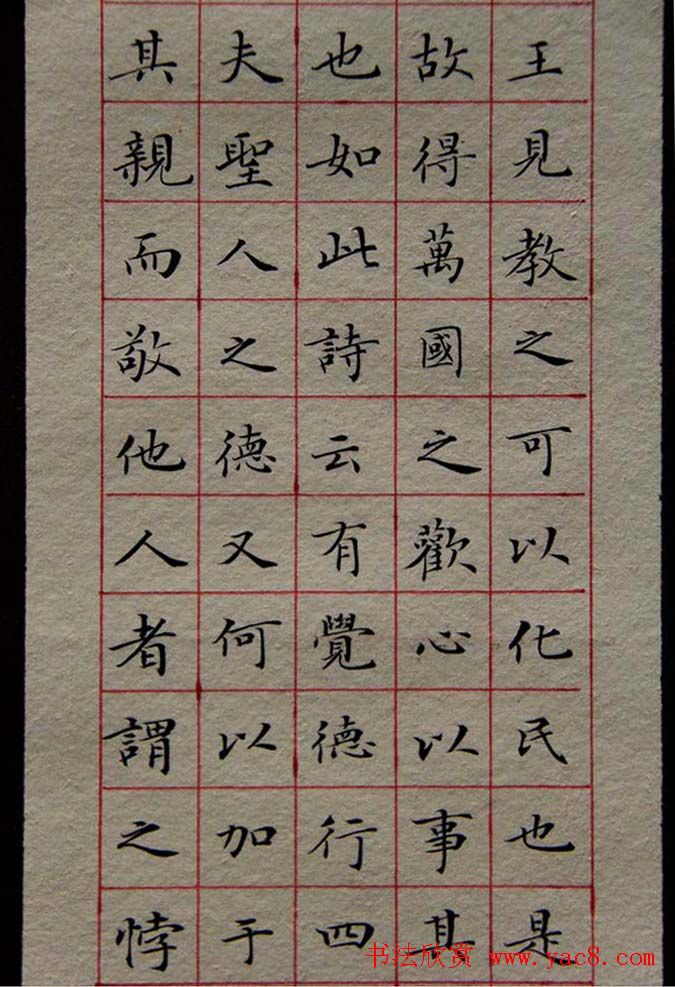 王見教之可以化民也是
故得萬國之歡心以事其
也如此詩云有覺德行四
夫聖人之德又何以加于
其親而敬他人者謂之悖
书法欣赏 www.yac8.com